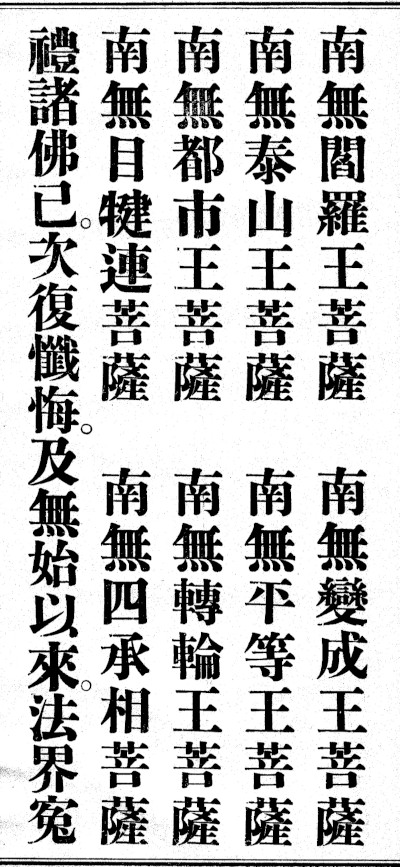 南無閻羅王菩薩　南無變成王菩薩
南無泰山王菩薩　南無平等王菩薩
南無都市王菩薩　南無轉輪王菩薩
南無目犍連菩薩　南無四承相菩薩
禮諸佛已。次復懺悔。及無始以來。法界冤